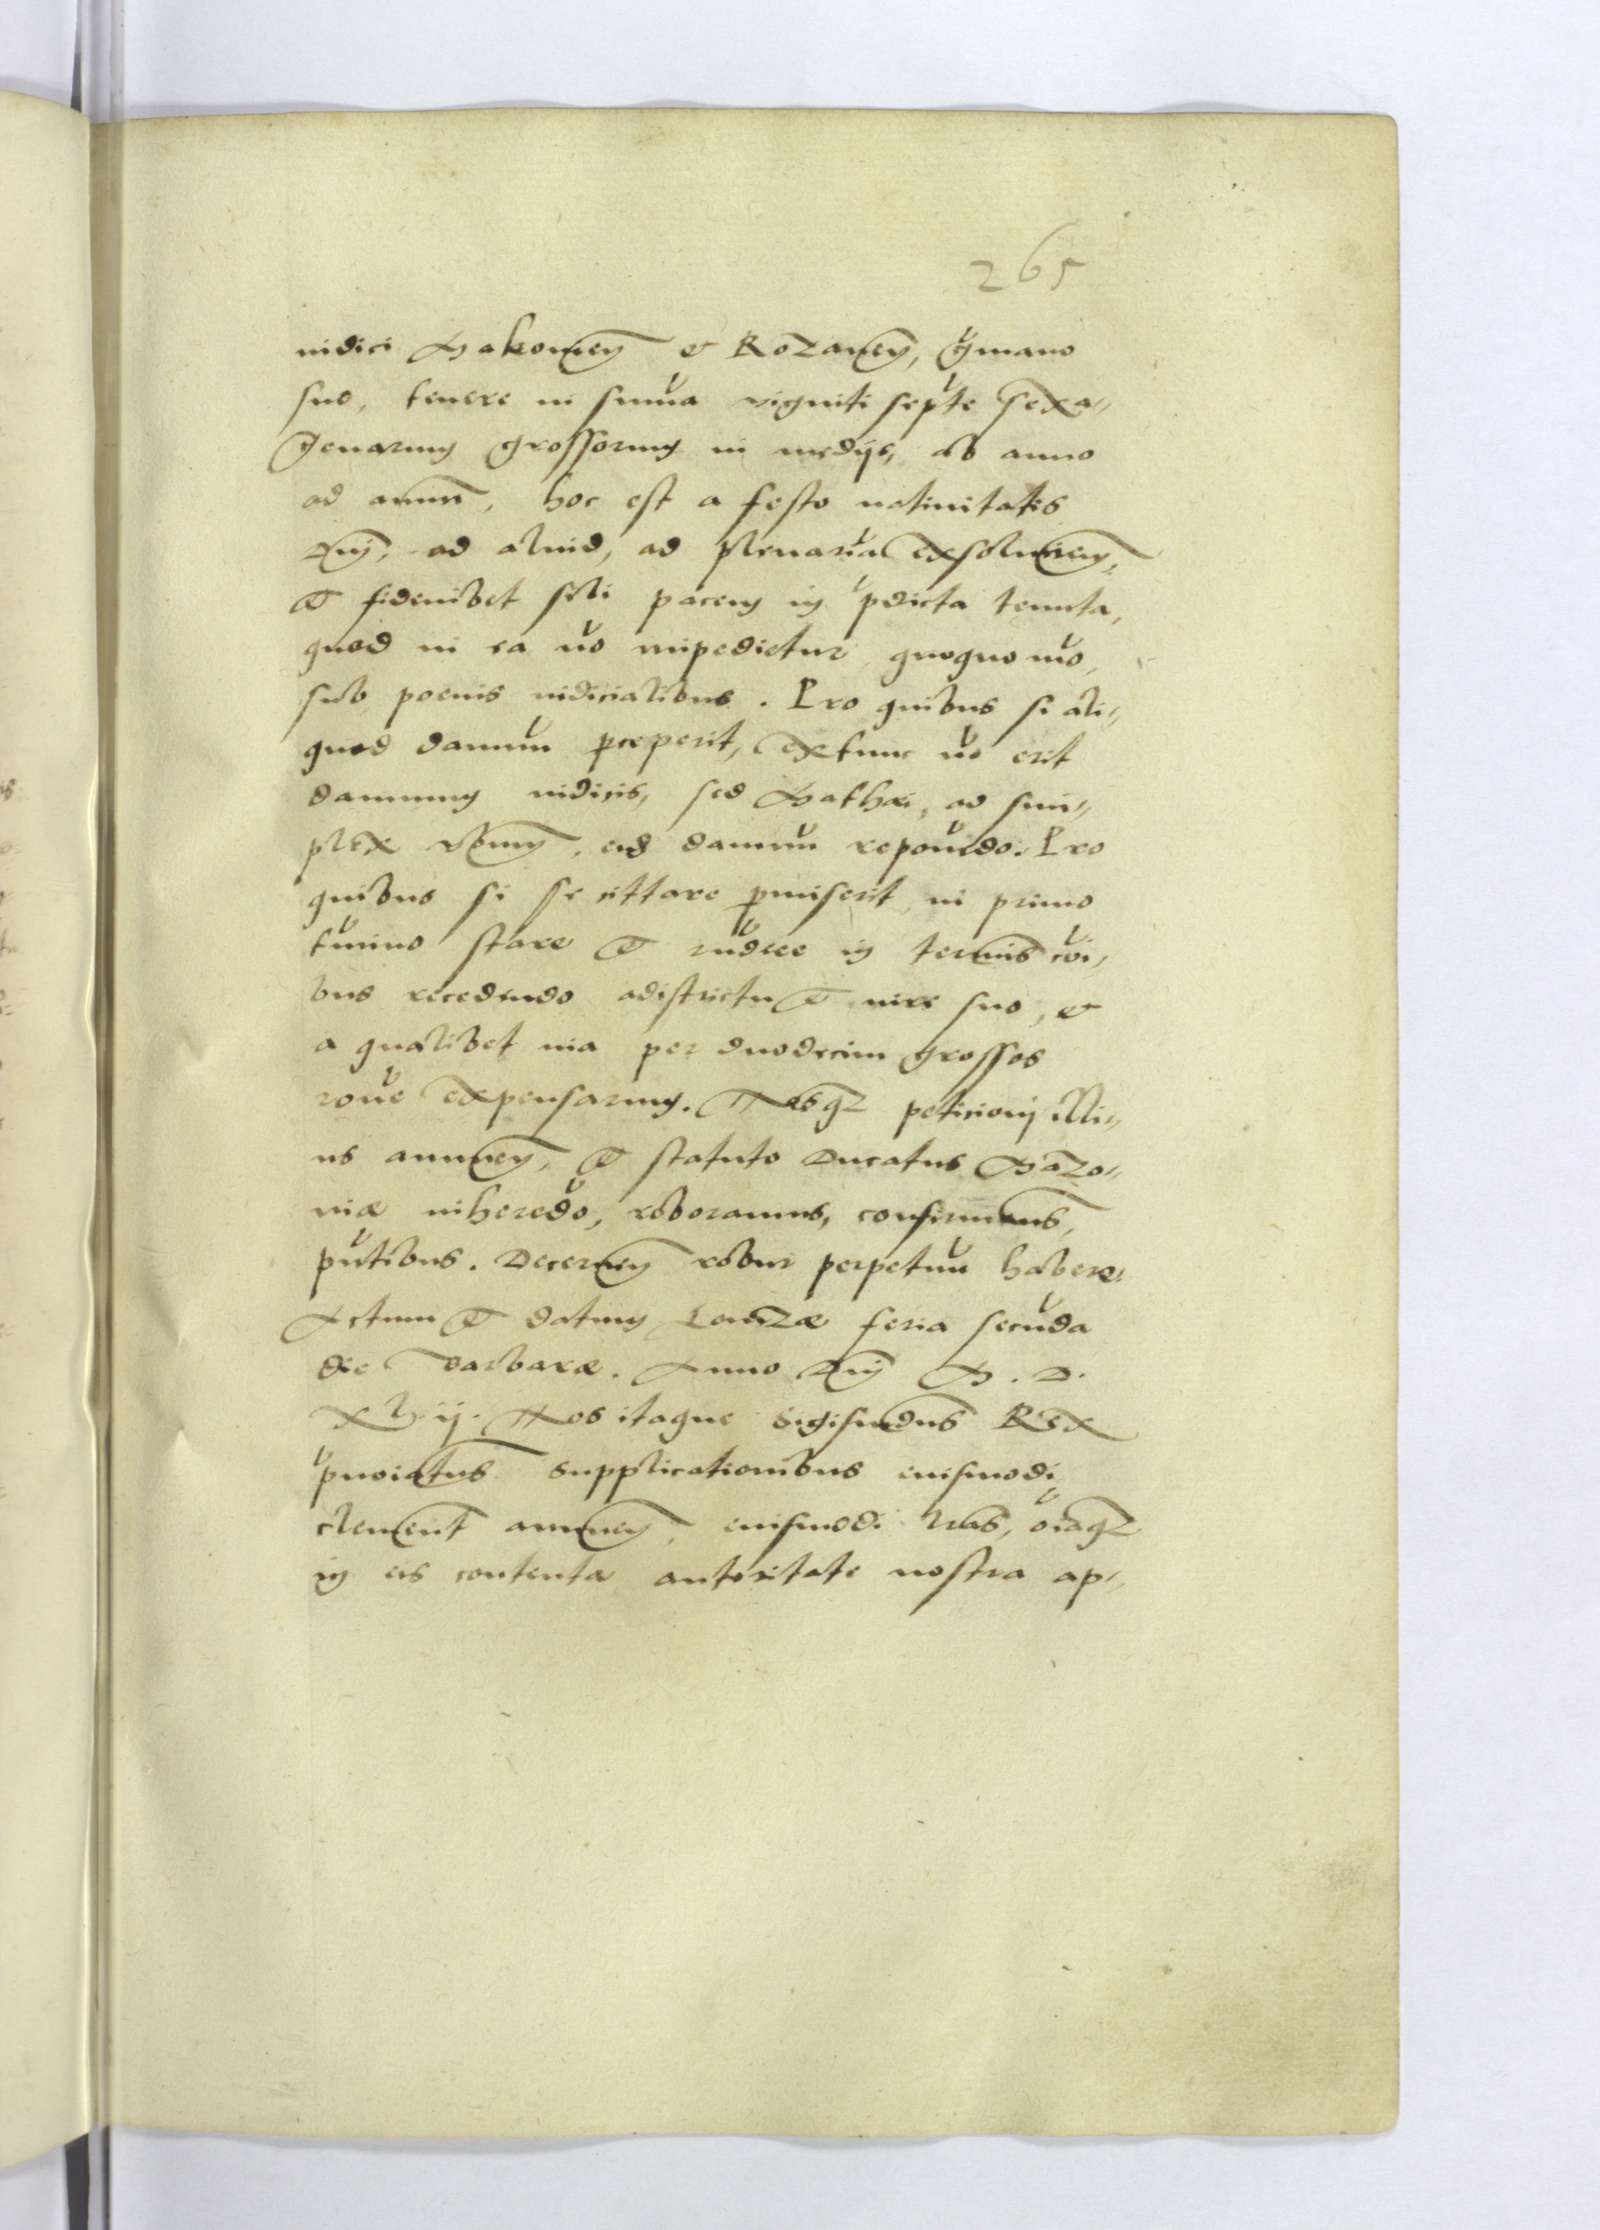 265
iudici Makovien et Rozanen, germano
suo, tenere in summa viginti septe sexa-
genarum grossorum in medijs, ab anno
ad annum, hoc est a festo natiuitatis
Dni, ad aliud, ad plenaria exsolucionem,
et fideiubet sibi pacem in pdicta tenuta,
quod in ea no impedietur quoquo mo,
sub poenis iudicialibus. Pro quibus si ali-
quod damnu perceperit, extunc no erit
damnum iudicis, sed Mathæi, ad sim-
plex verbum, eid damnu reponedo. Pro
quibus si se cittare permiserit, in primo
termino stare et rndere in terminis oi-
bus recededo a districtu et iure suo, et
a qualibet via per duodecim grossos
rone expensarum. Nosqz peticioni illi-
us annuen, et statuto Ducatus Mazo-
viæ inheredo, roboramus, confirmamus,
pntibus. Decernen robur perpetuu habere.
Actum et datum Lomzæ feria secuda
die Barbaræ. Anno Dni M. D.
XVij. Nos itaque Sigismudus Rex
pnoiatus supplicationibus eiusmodi
clementer annuen, eiusmodi lras, oiaqz
in eis contenta autoritate nostra ap-